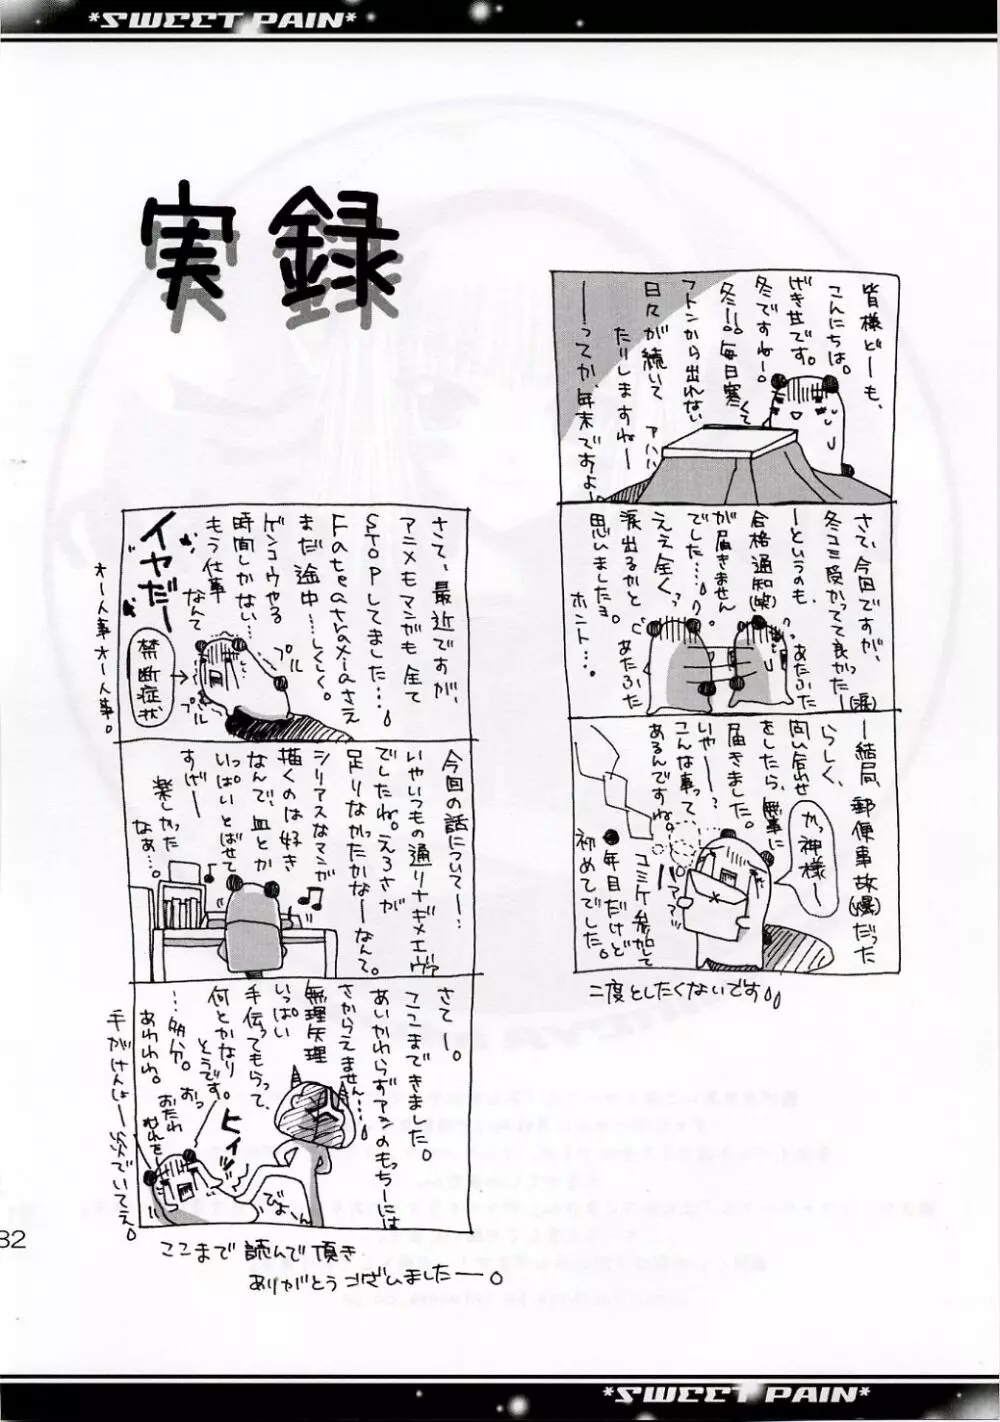 *SWEET PAIN*
実録
皆様どーも、
こんにちは。
げきせです。
冬ですねー。
冬ー。。毎日寒くて
フトンから出れない
日々が続いて
アハハ
たりしますねー
ーってか、年末ですよー。
さて、今回ですが、
冬コミ受かってて良かったー(涙)
ーというのも、
合格通知(笑)
が届きません
でした…。
ええ全く？
涙出るかと
思いましたヨ。
ホント…。
あたふた
あたふた
ー結局、郵便事故(爆)だった
らしく、
問い合わせ
をしたら、無事に
届きました。
いやー、
こんな事って、
あるんですね。
かっ神様ー
ハァァッ
コミケ参加して
●年目だけど
初めてでした。
二度としたくないです。
さて、最近ですが、
アニメもマンガも全て
STOPしてました…。
Fateatraxiaさえ
まだ途中…。しくしく。
ゲンコウやる
時間しかない…
もう仕事
なんて
イヤだー
オー人事オー人事。
禁断症状
プル
プル
今回の話についてー…
いやいつもの通りナギ×エヴァ
でしたね。えろさが
足りなかったかなーなんて。
シリアスなマンガ
描くのは好き
なんで、血とか
いっぱいとばせて
すげー
楽しかった
なぁ…。
さてー。
ここまできました。
あいかわらずアシのもっちーには
さからえません…。
無理矢理
いっぱい
手伝ってもらって、
何とかなり
とうです。
…多分。おっ
あわわわ。おたわ
むれを
ヒィッ
びよーん
手がけんしょー炎でいてえ。
ここまで読んで頂き
ありがとうございましたー。
32
*SWEET PAIN*